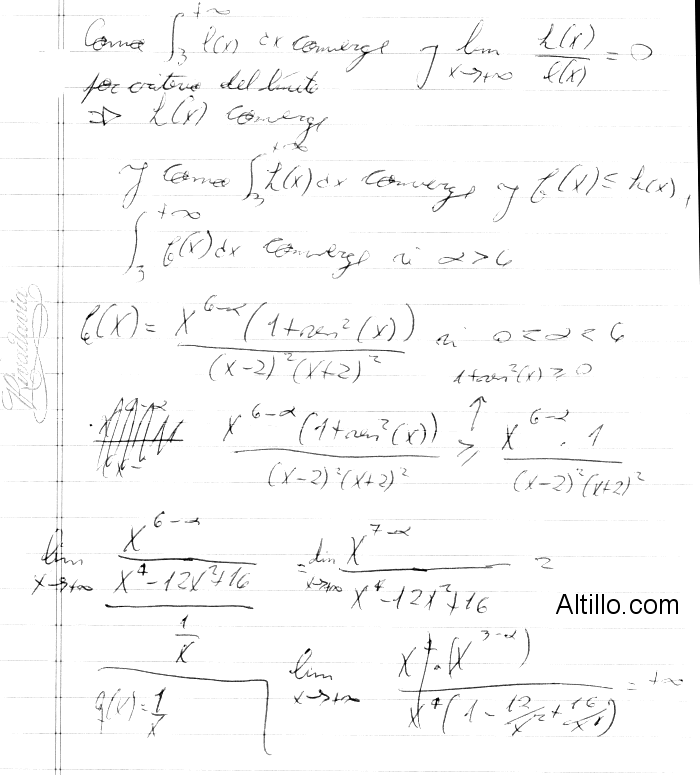 Como ∫₃^{+∞} l(x) dx converge y lim_{x→+∞} h(x)/l(x) = 0
por criterio del límite
⇒ h(x) converge
y como ∫₃^{+∞} h(x) dx converge y f(x) ≤ h(x),
∫₃^{+∞} f(x) dx converge si α > 6
f(x) = x^{6-α} (1+sen²(x)) / ((x-2)²(x+2)²) si 0 < α < 6
1+sen²(x) ≥ 0
x^{6-α} (1+sen²(x)) / ((x-2)²(x+2)²) ≥ x^{6-α} · 1 / ((x-2)²(x+2)²)
lim_{x→+∞} (x^{6-α} / (x⁴-12x²+16)) / (1/x) = lim_{x→+∞} x^{7-α} / (x⁴-12x²+16) =
g(x) = 1/x
lim_{x→+∞} x⁴·(x^{3-α}) / (x⁴(1 - 12/x² + 16/x⁴)) = +∞
Rivadavia
Altillo.com